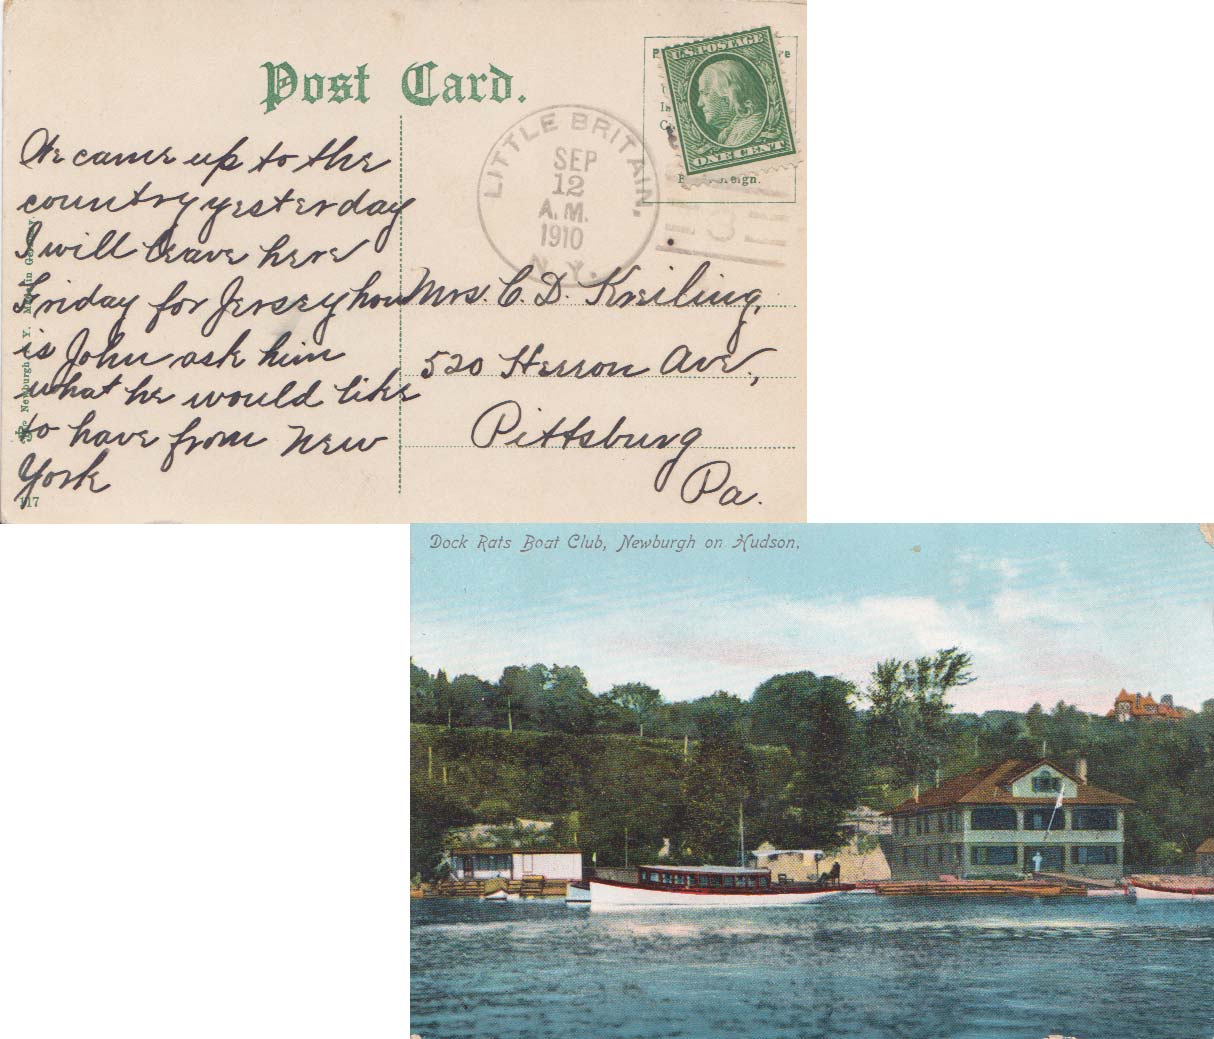 Post Card.
U.S. POSTAGE
ONE CENT
LITTLE BRITAIN,
SEP
12
A.M.
1910
N.Y.
We came up to the
country yesterday
I will leave here
Friday for Jersey how
is John ask him
what he would like
to have from New
York
Mrs. C. D. Kreiling,
520 Herron Ave.,
Pittsburg
Pa.
Newburgh
117
Dock Rats Boat Club, Newburgh on Hudson.